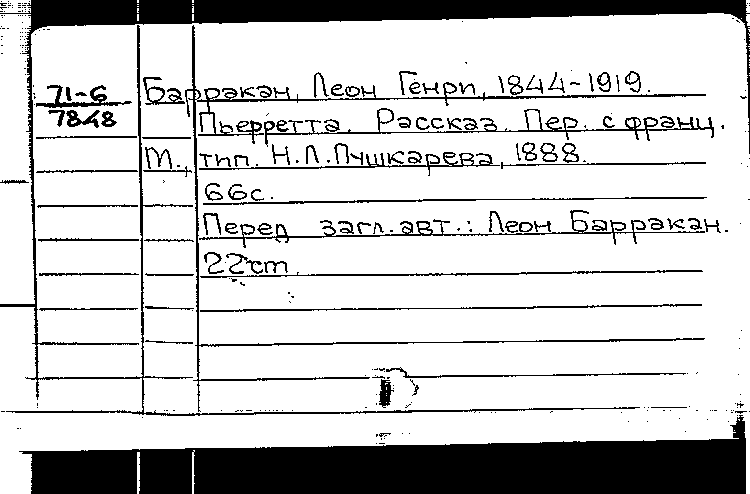 71-6 Барракан, Леон Генри, 1844-1919.
7848 Пьерретта. Рассказ. Пер. с франц.
М., тип. Н.Л.Пушкарева, 1888.
66с.
Перед загл. авт.: Леон Барракан.
22 cm.